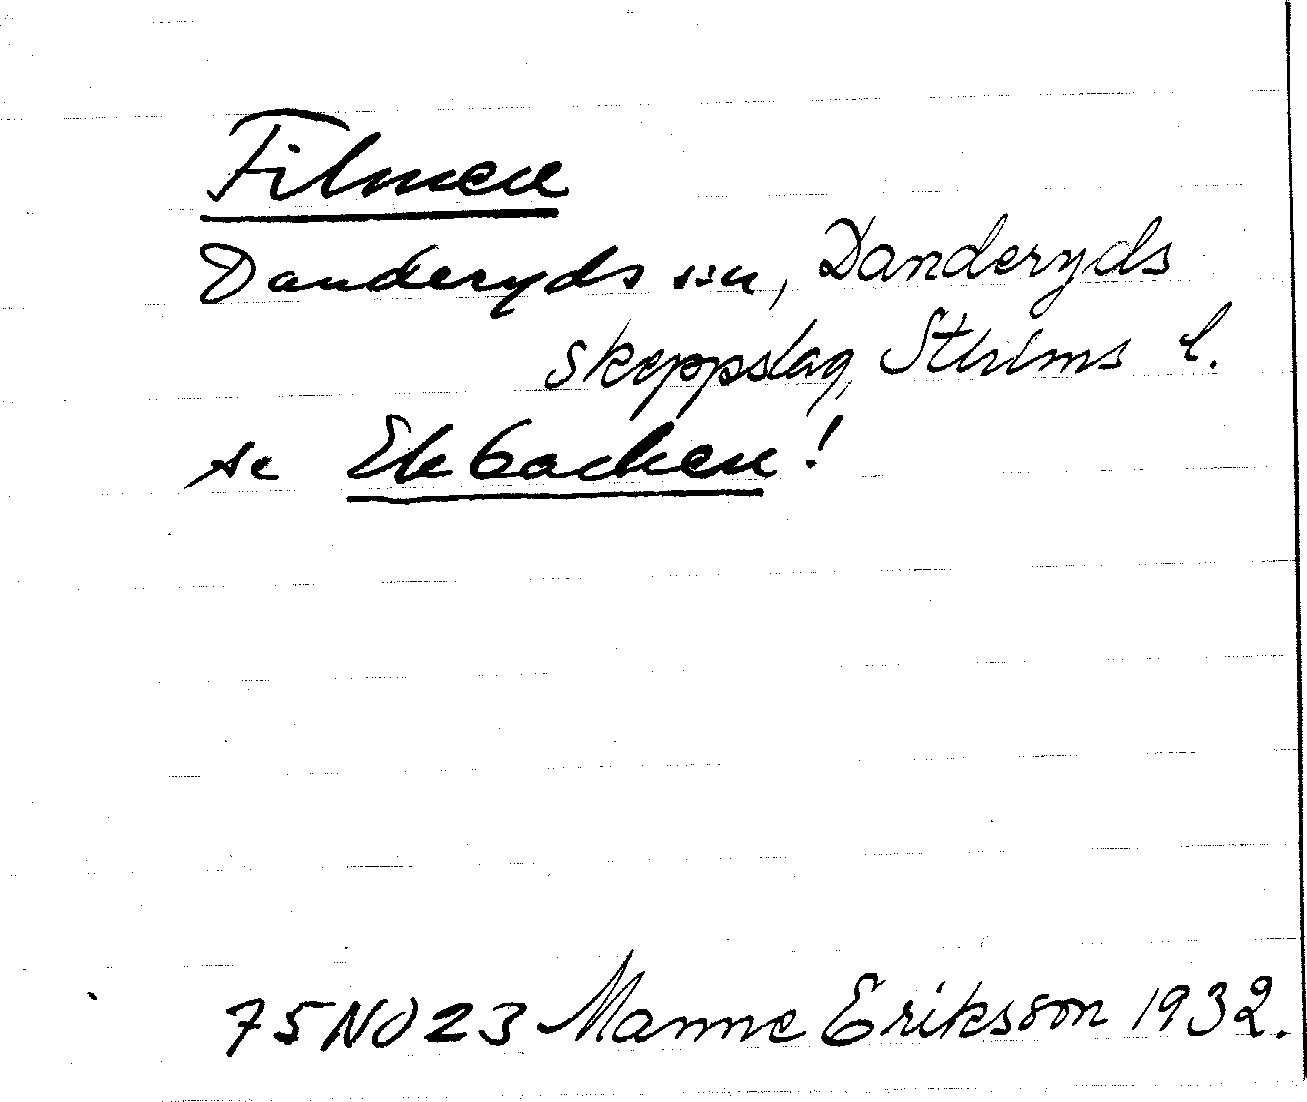 Filmen
Danderyds sn, Danderyds
skeppslag, Sthlms l.
se Ekbacken!
75NO23 Manne Eriksson 1932.